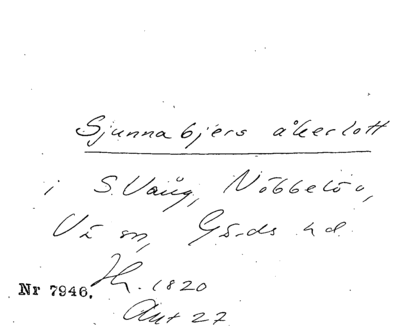 Sjunnabjers åkerlott
i S. Vång, Nöbbelöv,
Vä sn, Gärds hd
Nr 7946. Jh. 1820
Akt 27